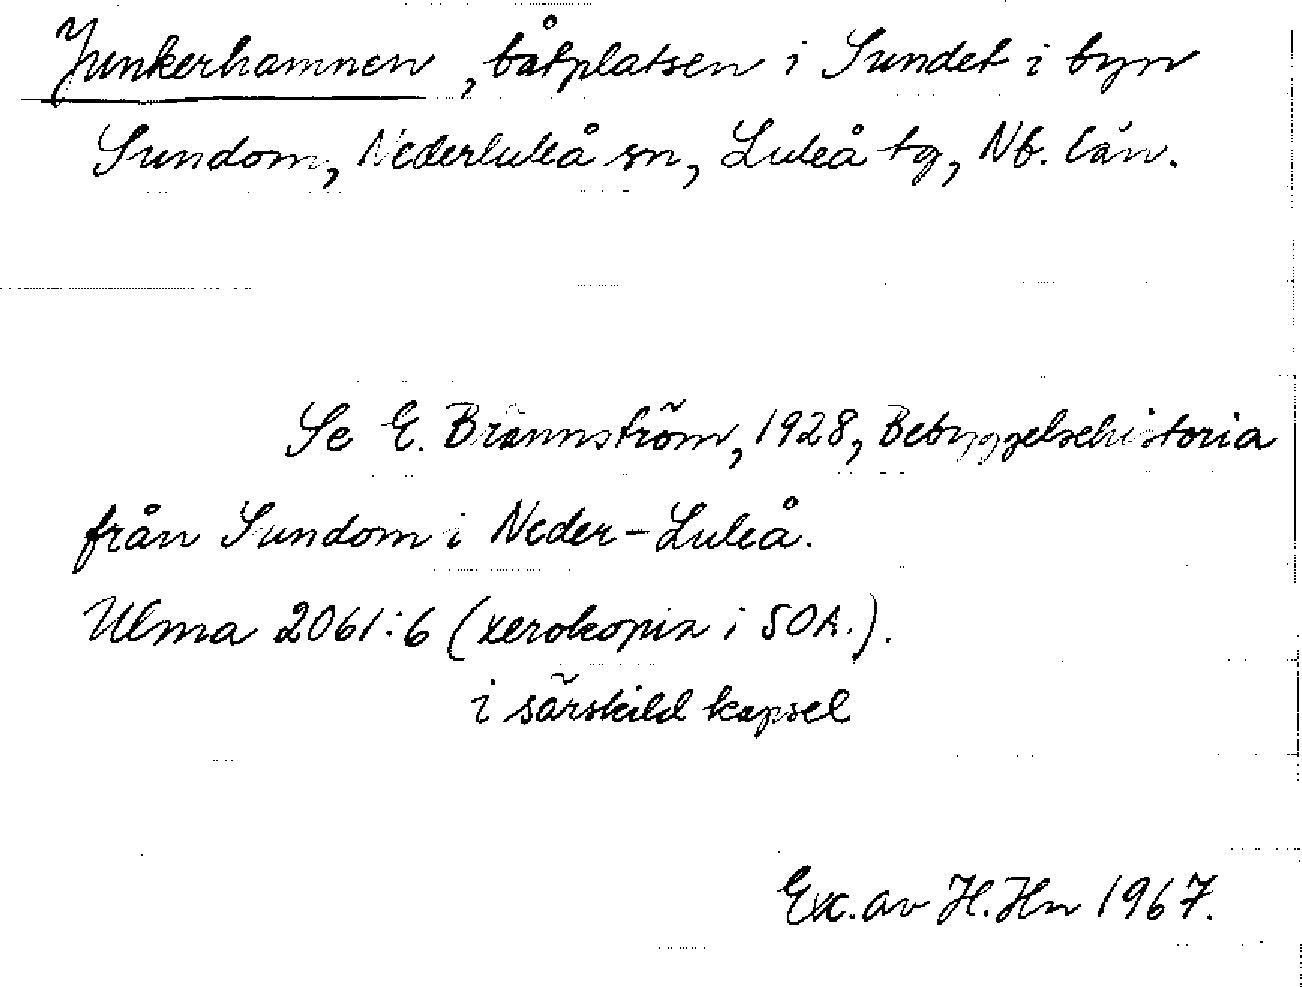 Junkerhamnen, båtplatsen i Sundet i byn
Sundom, Nederluleå sn, Luleå tg, Nb. län.
Se E. Brännström, 1928, Bebyggelsehistoria
från Sundom i Neder-Luleå.
Ulma 2061:6 (xerokopia i SOA.).
i särskild kapsel
Exc. av H. Hn 1967.